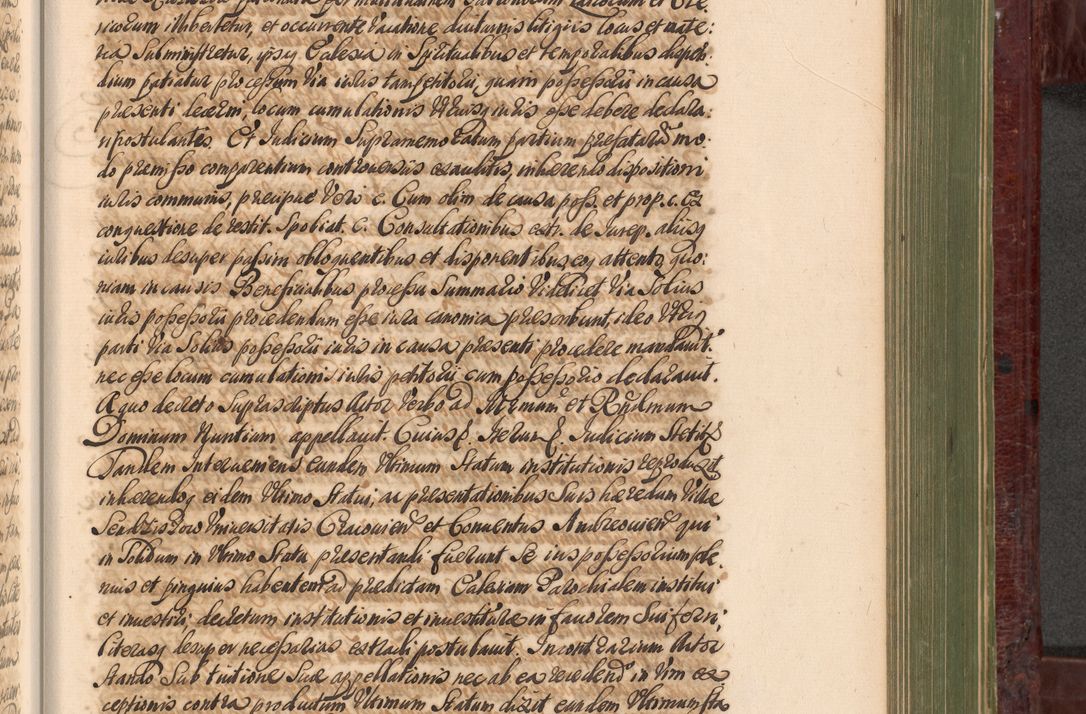 ricorum illibertetur, et occurrente vacatione diuturnis litigiis locus et mate:
ria subministretur, ipsaq Ecclesia in spiritualibus et temporalibus dispen:
dium patiatur processum via iuris tam petitorii, quam possessorii in causa
presenti locum cumulationis utriusq iuris esse debere declara
ri postulantes. Et Iudicium Supramemoratum partium prefatarum mo:
do premisso comparentium controversiis exauditis, inhærendo dispositioni
iuris communis, precipue vero c. Cum olim de causa poss. et prop. c. Ex
conquestione de restit. Spoliat. c. Consultationibus extr. de Surep. aliisq
iuribus desuper passim obloquentibus et disponentibus, eoq attento, quo:
niam in causis Beneficialibus processu Summario videlicet via solius
iuris possessorii procedendum esse iura canonica præscribunt, ideo utriq
parti via solius possessorii iuris in causa præsenti procedere mandavit.
nec esse locum cumulationis iuris petitorii cum possessorio declaravit.
A quo decreto Suprascriptus Actor verbo ad Illrmum et Rndmum
Dominum Nuntium appellavit. Cuius Iudicium
Tandem Interveniens eundem ultimum statum institutionis reproduxit
inhærendoq eidem ultimo statui, ac presentationibus suis hæredum Villæ
Universitatis Cracovien et Conventus Andreovien qui
in solidum in ultimo statu presentandi fuerunt Se ius possessorium ple
nius et pinguius habentem ad prædictam Ecclesiam Parochialem institui
et investiri, decretum institutionis et investituræ in favorem Sui ferri,
literasq desuper necessarias extradi postulavit. In contrarium Actor
stando sub tuitione Suæ appellationis nec ab ea recedendo in vim ex
ceptionis contra productum ultimum statum dixit eundem ultimum sta